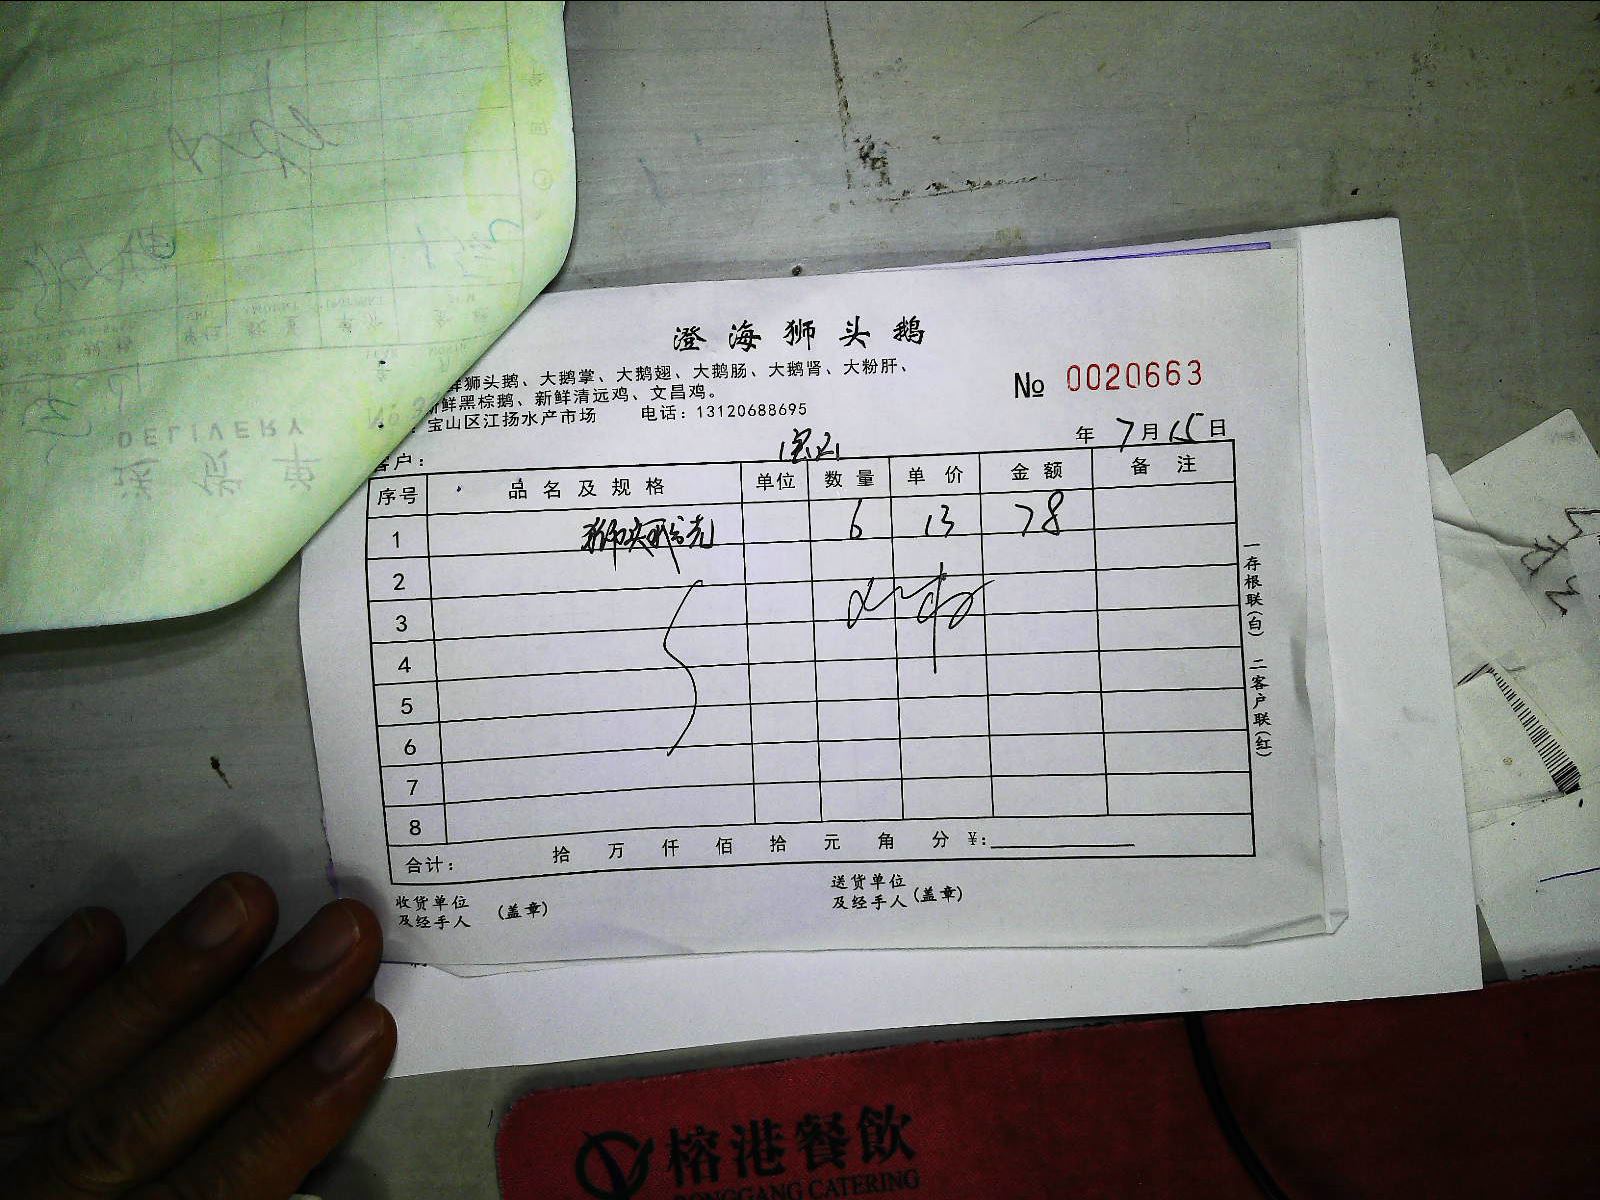 澄海狮头鹅
鲜狮头鹅、大鹅掌、大鹅翅、大鹅肠、大鹅肾、大粉肝、
鲜黑棕鹅、新鲜清远鸡、文昌鸡。
宝山区江扬水产市场 电话：13120688695
No 0020663
客户：
年 7月15日
序号 品名及规格 单位 数量 单价 金额 备注
1 狮头鹅 6 13 78
2
3
4
5
6
7
8
合计： 拾 万 仟 佰 拾 元 角 分 ¥:
收货单位
及经手人 (盖章)
送货单位
及经手人 (盖章)
一存根联(白) 二客户联(红)
送货单
DELIVERY
榕港餐飲
RONGGANG CATERING